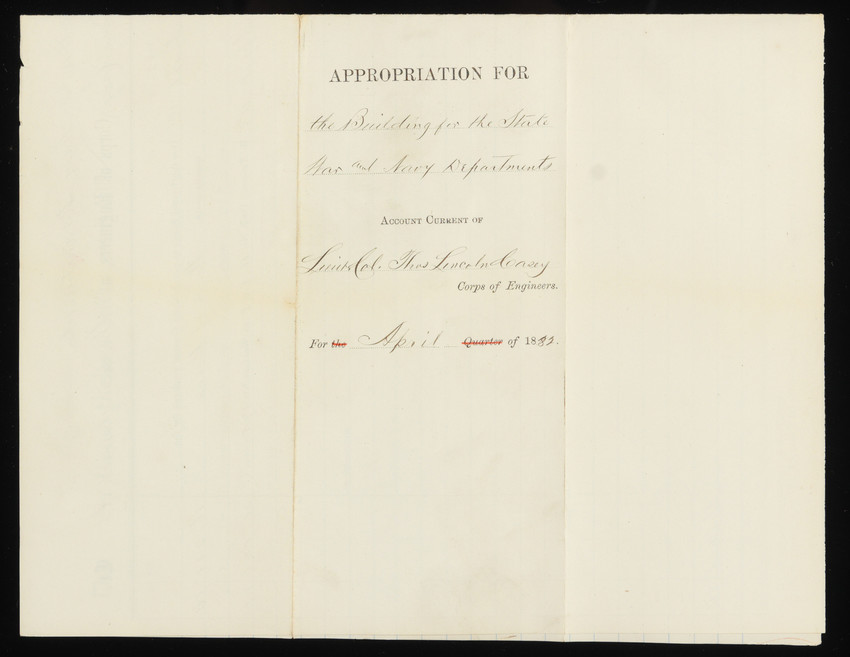 APPROPRIATION FOR
the Building for the State
War and Navy Departments
ACCOUNT CURRENT OF
Lieut Col. Thos Lincoln Casey
Corps of Engineers.
For the April Quarter of 1882.